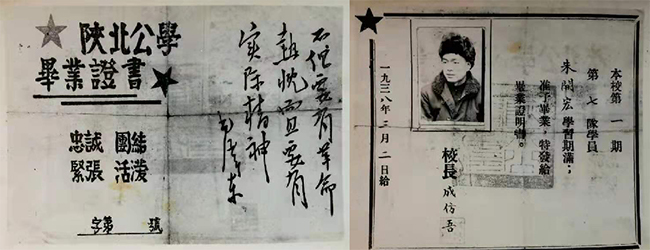 陝北公學
畢業證書
忠誠 團結
緊張 活潑
字第 號
不但要有革命
熱忱而且要有
实际精神
毛澤東
本校第一期
第七隊學員
朱開宏學習期滿；
准予畢業，特發給
畢業證明書。
校長 成仿吾
一九三八年二月二日給